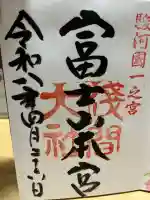 駿河國一之宮
富士本宮
淺間大社
令和八年四月二十六日